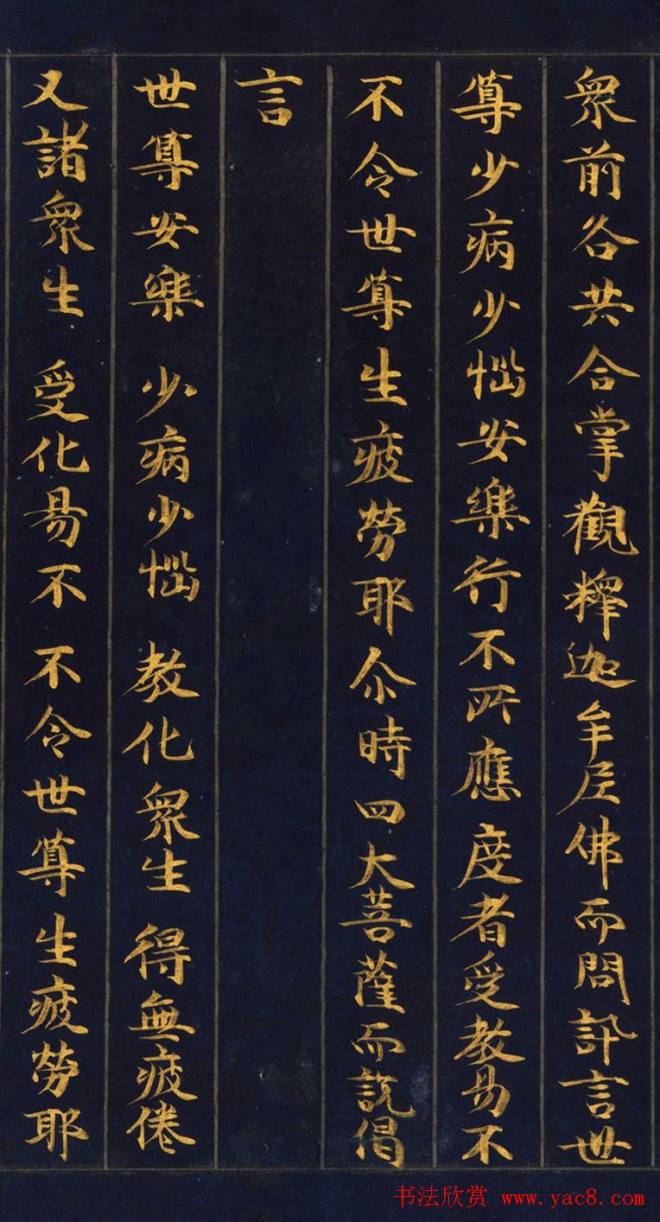 衆前各共合掌觀釋迦牟尼佛而問訊言世
尊少病少惱安樂行不所應度者受教易不
不令世尊生疲勞耶尒時四大菩薩而說偈
言
世尊安樂 少病少惱 教化衆生 得無疲倦
又諸衆生 受化易不 不令世尊生疲勞耶
书法欣赏 www.yac8.com